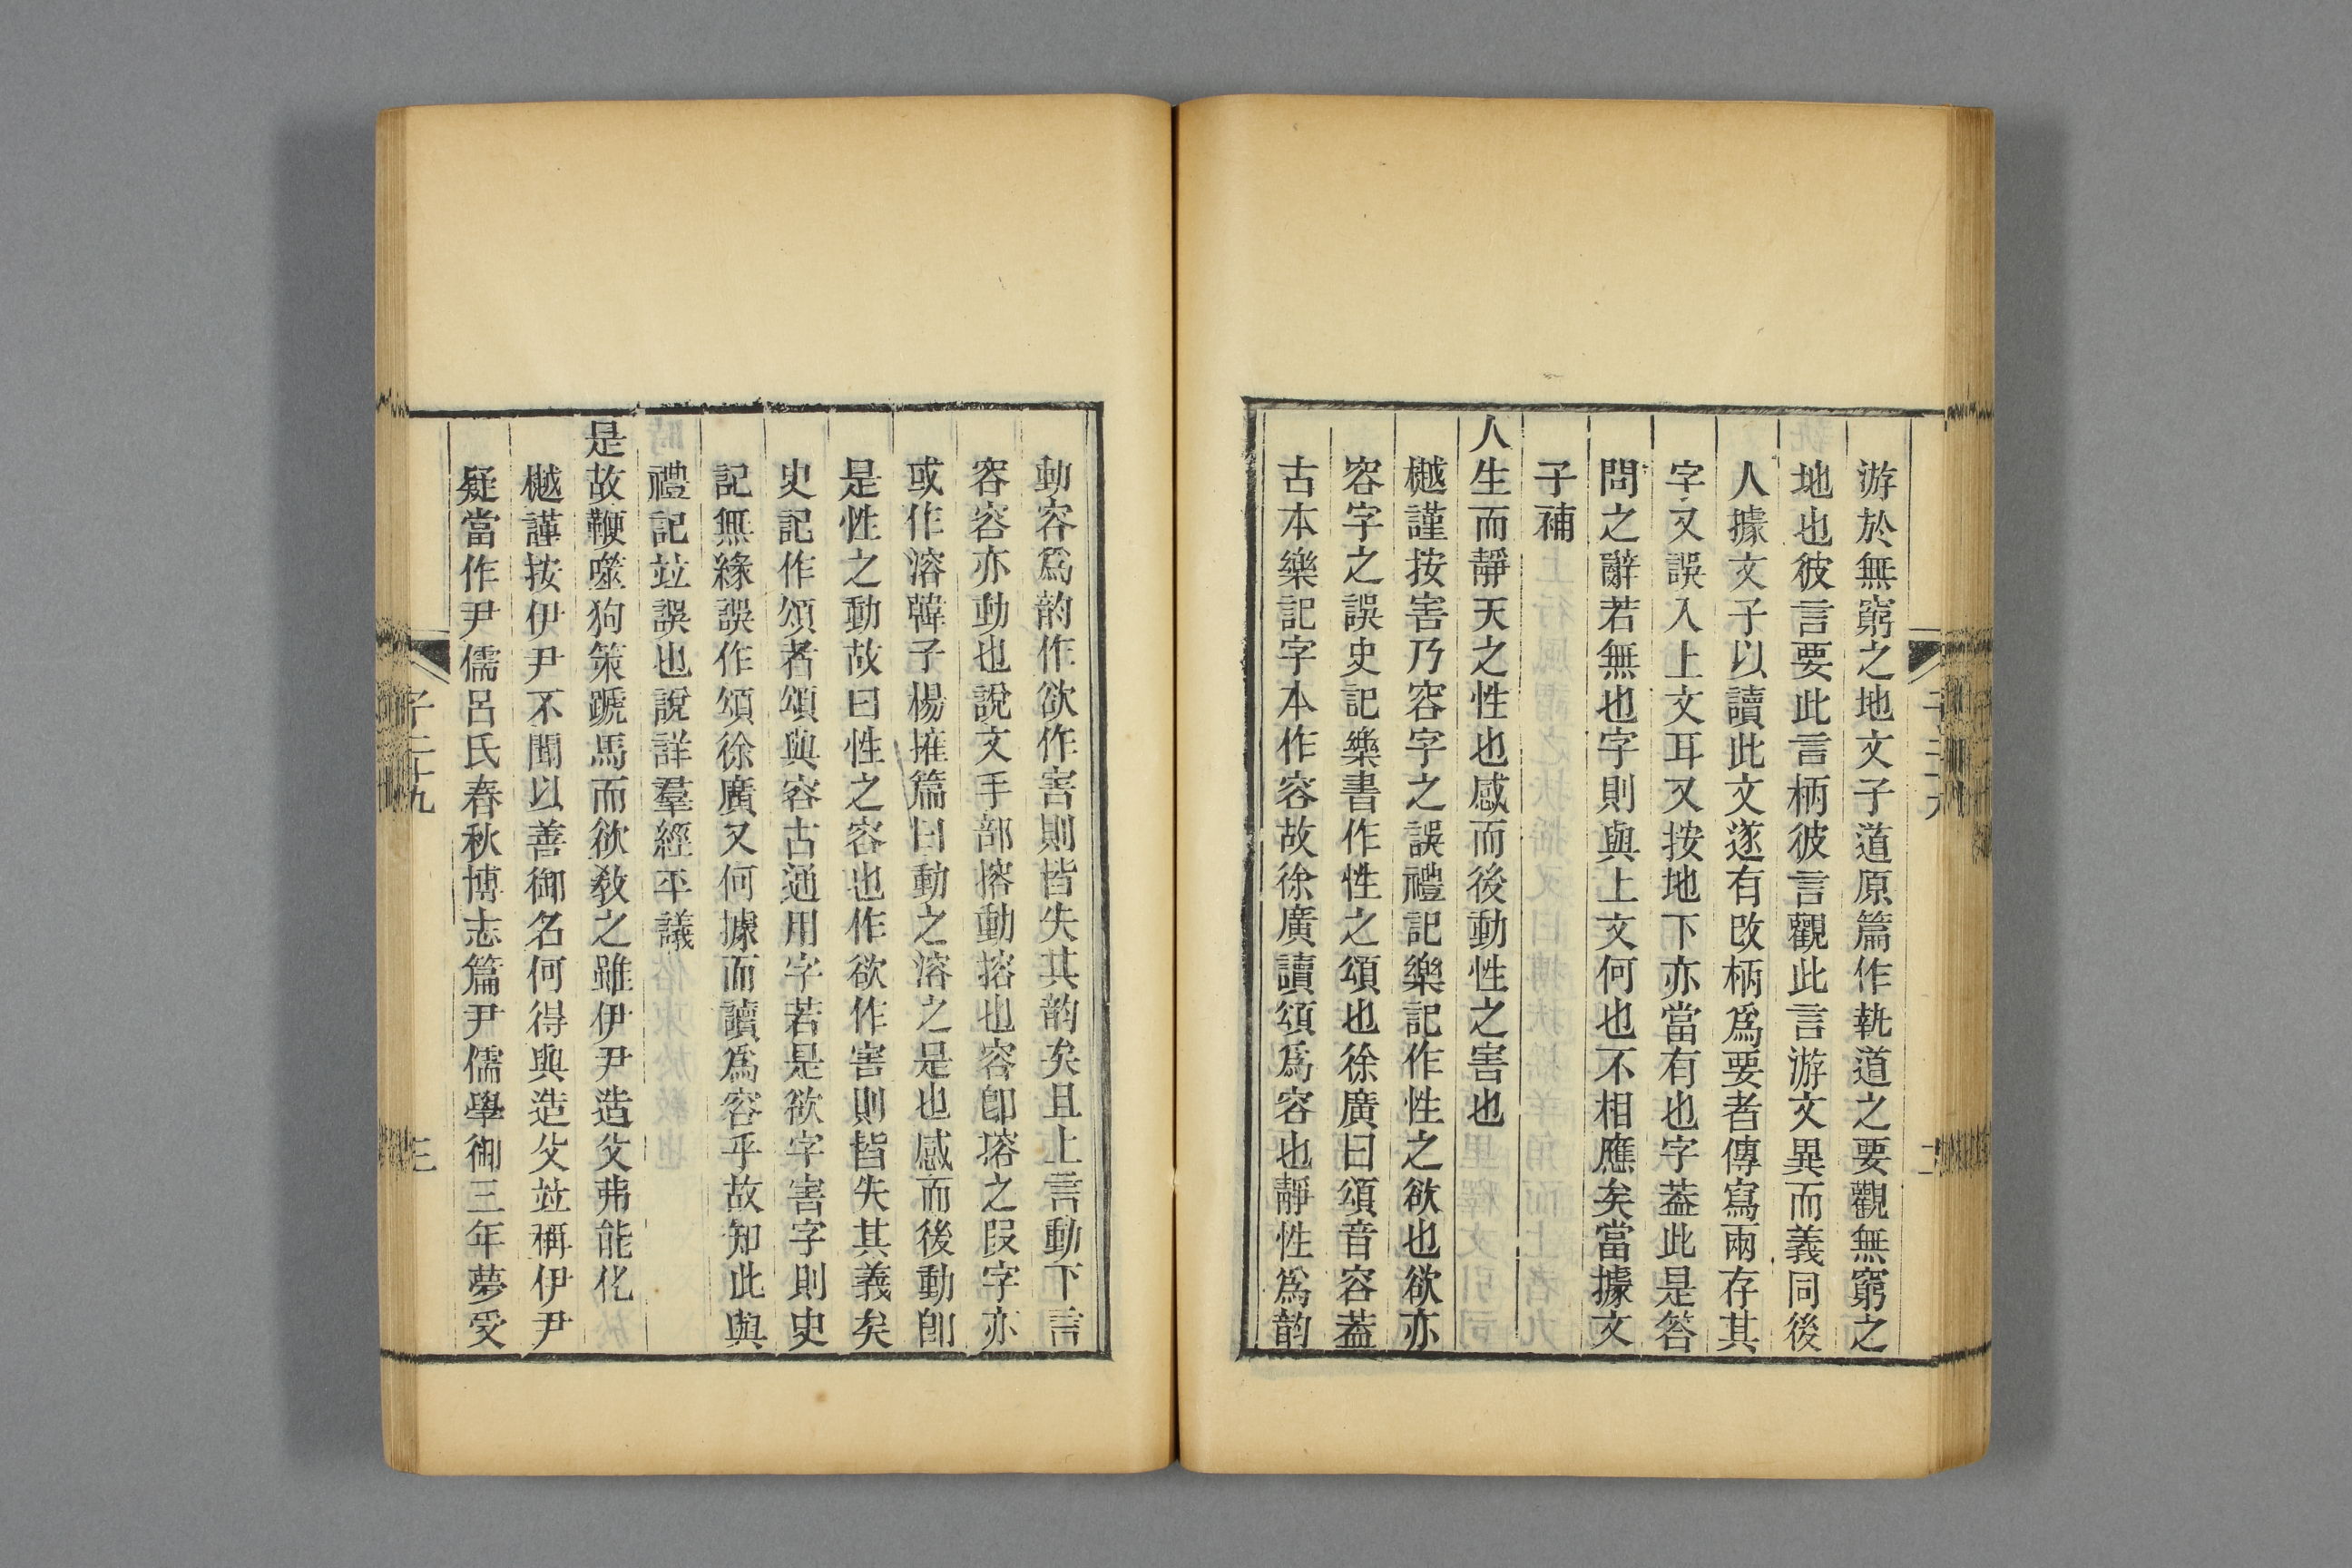 游於無窮之地文子道原篇作執道之要觀無窮之
地也彼言要此言柄彼言觀此言游文異而義同後
人據文子以讀此文遂有改柄爲要者傳寫兩存其
字又誤入上文耳又按地下亦當有也字葢此是答
問之辭若無也字則與上文何也不相應矣當據文
子補
人生而靜天之性也感而後動性之害也
樾謹按害乃容字之誤禮記樂記作性之欲也欲亦
容字之誤史記樂書作性之頌也徐廣曰頌音容葢
古本樂記字本作容故徐廣讀頌爲容也靜性爲韵
動容爲韵作欲作害則皆失其韵矣且上言動下言
容容亦動也說文手部搈動搈也容卽搈之叚字亦
或作溶韓子楊搉篇曰動之溶之是也感而後動卽
是性之動故曰性之容也作欲作害則皆失其義矣
史記作頌者頌與容古通用字若是欲字害字則史
記無緣誤作頌徐廣又何據而讀爲容乎故知此與
禮記竝誤也說詳羣經平議
是故鞭噬狗策蹏馬而欲敎之雖伊尹造父弗能化
樾謹按伊尹不聞以善御名何得與造父竝稱伊尹
疑當作尹儒呂氏春秋博志篇尹儒學御三年夢受
子二十九
三